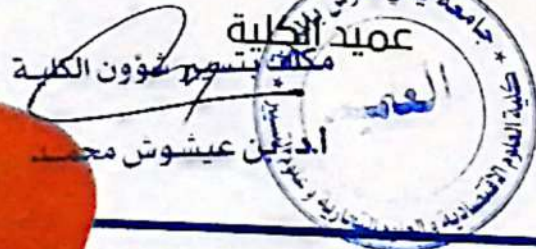 عميد الكلية
مكلف بتسيير شؤون الكلية
أ.د. بن عيشوش محمد
العميد
كلية العلوم الاقتصادية و العلوم التجارية و علوم